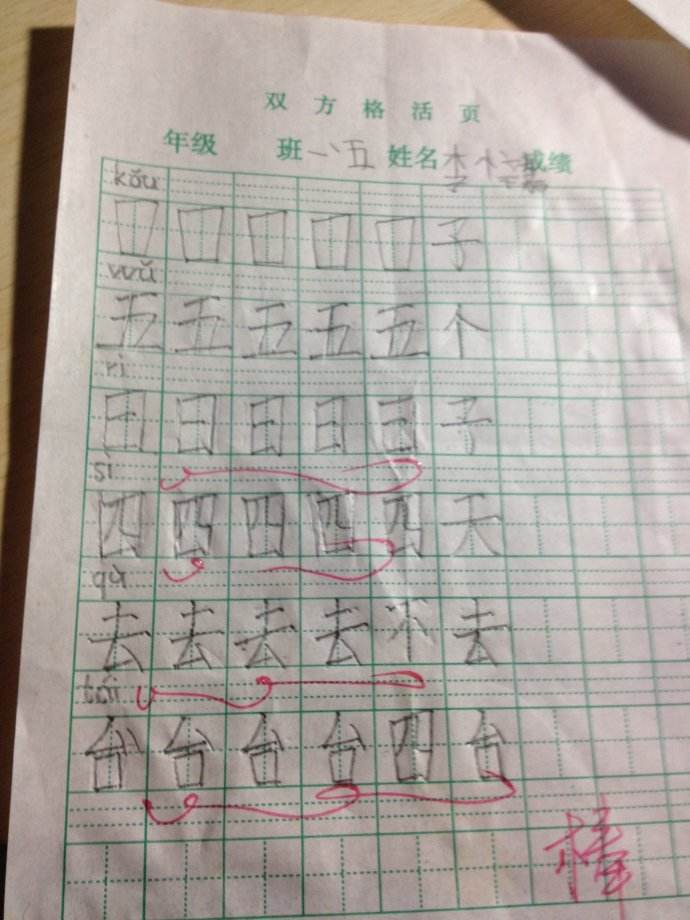 双方格活页
年级 班 一、五 姓名 李 成绩
kǒu
口 口 口 口 口 子
wǔ
五 五 五 五 五 个
rì
日 日 日 日 日 子
sì
四 四 四 四 四 天
qù
去 去 去 去 不 去
tái
台 台 台 台 四 台
棒